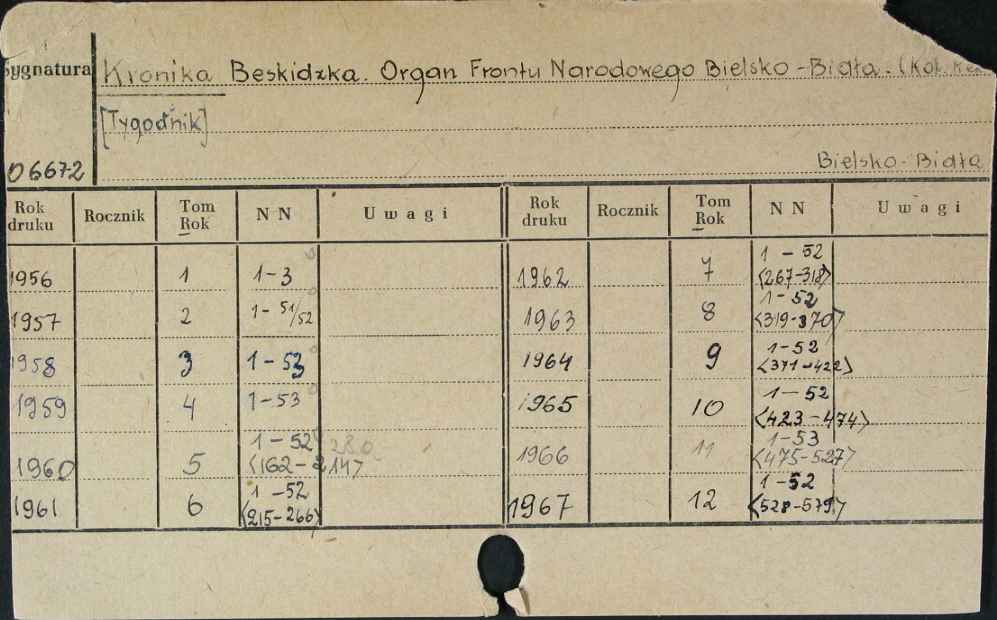 Sygnatura Kronika Beskidzka. Organ Frontu Narodowego Bielsko-Biała. (Kol.
[Tygodnik]
D 6672 Bielsko-Biała
Rok druku Rocznik Tom Rok NN Uwagi Rok druku Rocznik Tom Rok NN Uwagi
1956 1 1-3 1962 7 1-52 <267-318>
1957 2 1-51/52 1963 8 1-52 <319-370>
1958 3 1-53 1964 9 1-52 <371-422>
1959 4 1-53 1965 10 1-52 <423-474>
1960 5 1-52 <162-214> 1966 11 1-53 <475-527>
1961 6 1-52 <215-266> 1967 12 1-52 <528-579>